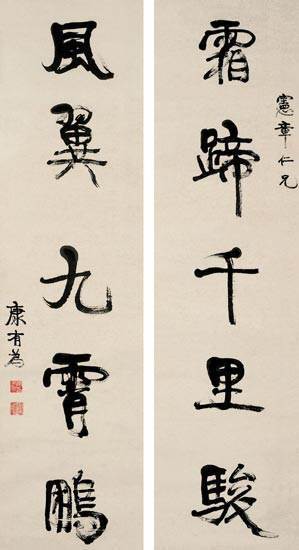 霜蹄千里駿
憲章仁兄
風翼九霄鵬
康有為